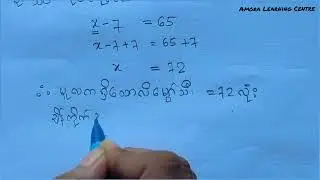 Amora Learning Centre
x - 7 = 65
x - 7 + 7 = 65 + 7
x = 72
∴ မူလကရှိသောလိမ္မော်သီး = 72 လုံး